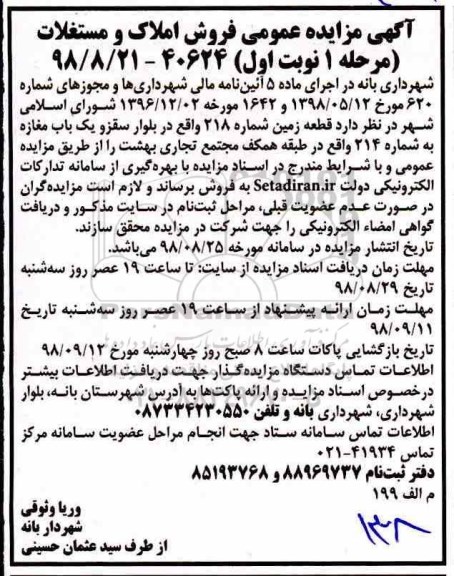 آگهی مزایده عمومی فروش املاک و مستغلات
(مرحله ۱ نوبت اول) ۴۰۶۲۴ - ۹۸/۸/۲۱
شهرداری بانه در اجرای ماده ۵ آئین‌نامه مالی شهرداری‌ها و مجوزهای شماره
۶۲۰ مورخ ۱۳۹۸/۰۵/۱۲ و ۱۶۴۲ مورخه ۱۳۹۶/۱۲/۰۲ شورای اسلامی
شهر در نظر دارد قطعه زمین شماره ۲۱۸ واقع در بلوار سقزو یک باب مغازه
به شماره ۲۱۴ واقع در طبقه همکف مجتمع تجاری بهشت را از طریق مزایده
عمومی و با شرایط مندرج در اسناد مزایده با بهره‌گیری از سامانه تدارکات
الکترونیکی دولت Setadiran.ir به فروش برساند و لازم است مزایده‌گران
در صورت عدم عضویت قبلی، مراحل ثبت‌نام در سایت مذکور و دریافت
گواهی امضاء الکترونیکی را جهت شرکت در مزایده محقق سازند.
تاریخ انتشار مزایده در سامانه مورخه ۹۸/۰۸/۲۵ می‌باشد.
مهلت زمان دریافت اسناد مزایده از سایت: تا ساعت ۱۹ عصر روز سه‌شنبه
تاریخ ۹۸/۰۸/۲۹
مهلت زمان ارائه پیشنهاد از ساعت ۱۹ عصر روز سه‌شنبه تاریخ
۹۸/۰۹/۱۱
تاریخ بازگشایی پاکات ساعت ۸ صبح روز چهارشنبه مورخ ۹۸/۰۹/۱۲
اطلاعات تماس دستگاه مزایده‌گذار جهت دریافت اطلاعات بیشتر
درخصوص اسناد مزایده و ارائه پاکت‌ها به آدرس شهرستان بانه، بلوار
شهرداری، شهرداری بانه و تلفن ۰۸۷۳۴۲۳۰۵۵۰
اطلاعات تماس سامانه ستاد جهت انجام مراحل عضویت سامانه مرکز
تماس ۴۱۹۳۴-۰۲۱
دفتر ثبت‌نام ۸۸۹۶۹۷۳۷ و ۸۵۱۹۳۷۶۸
م الف ۱۹۹
وریا وثوقی
شهردار بانه
از طرف سید عثمان حسینی